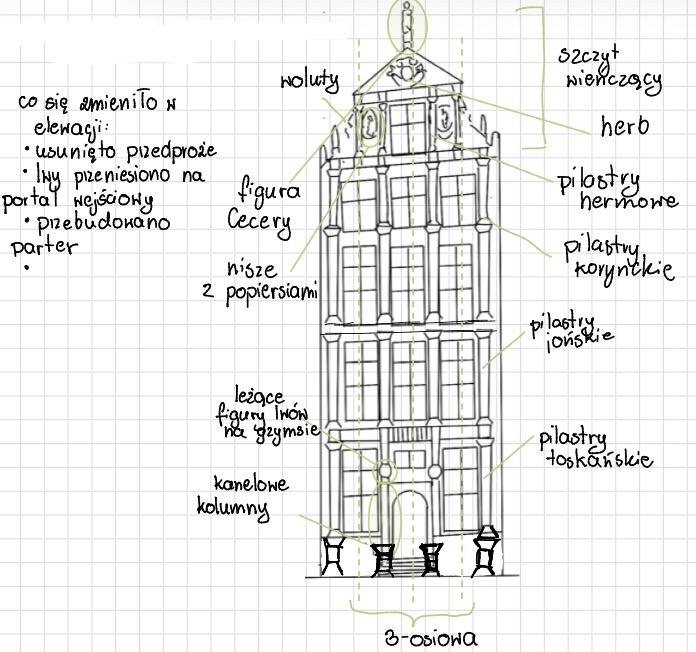 co się zmieniło w
elewacji:
• usunięto przedproże
• lwy przeniesiono na
portal wejściowy
• przebudowano
parter
•
woluty
figura
Cecery
nisze
z popiersiami
leżące
figury lwów
na gzymsie
kanelowe
kolumny
szczyt
wieńczący
herb
pilastry
hermowe
pilastry
korynckie
pilastry
jońskie
pilastry
toskańskie
3-osiowa